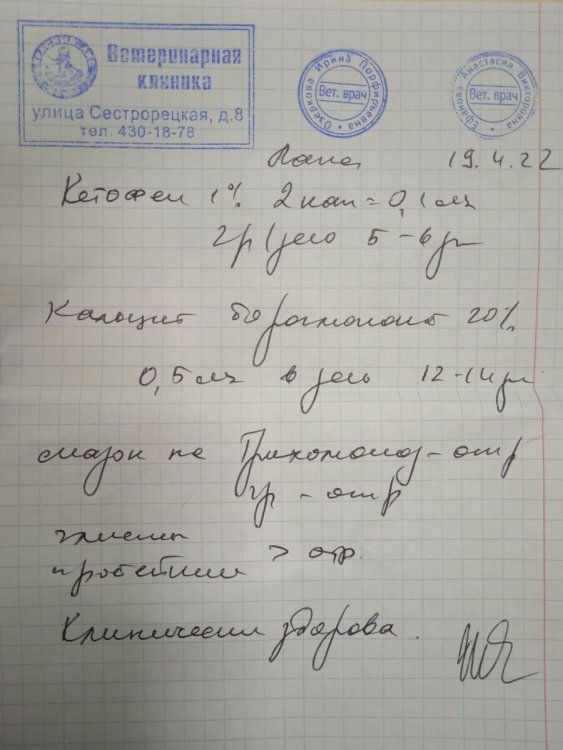 Ветеринарная
клиника
улица Сестрорецкая, д.8
тел. 430-18-78
Озеркова Ирина Порфирьевна
Вет. врач
Ефанова Анастасия Викторовна
Вет. врач
19.4.22
Кетофен 1% 2 кап = 0,1 мл
5-6
Кальция бороглюконат 20%
0,5 мл в день 12-14
мазок на Трихомоноз - отр
гр - отр
> отр.
Клинически здорова.